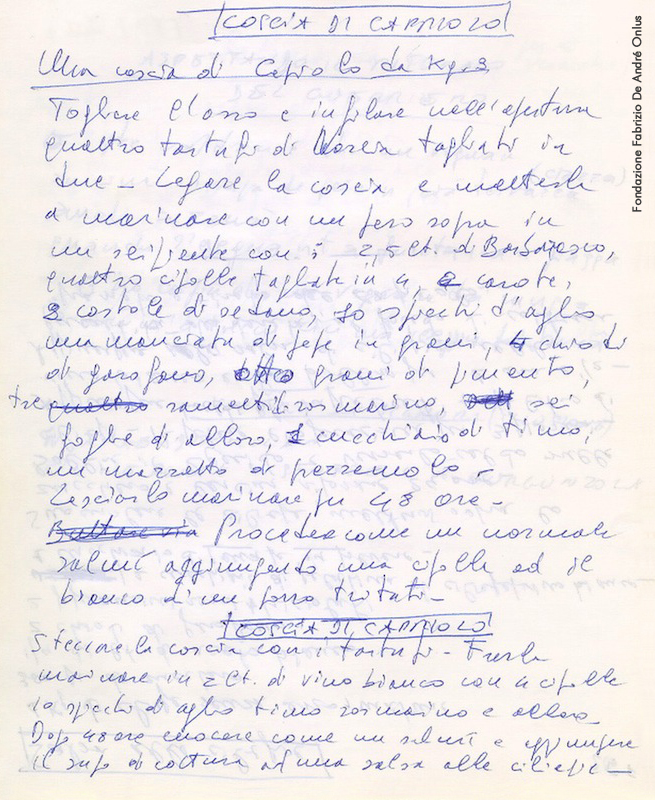 COSCIA DI CAPRIOLO
Una coscia di Capriolo da Kg. 3
Togliere l'osso e infilare nell'apertura
quattro tartufi di Norcia tagliati in
due - Legare la coscia e metterla
a marinare con un peso sopra in
un recipiente con 2,5 lt. di Barbaresco,
quattro cipolle tagliate in 4, 2 carote,
2 costole di sedano, 10 spicchi d'aglio
una manciata di pepe in grani, 4 chiodi
di garofano, otto grani di pimento,
tre quattro rametti di rosmarino, sei
foglie di alloro, 1 cucchiaio di timo,
un mazzetto di prezzemolo -
Lasciarla marinare per 48 ore -
Buttare via Procedere come un normale
salmì aggiungendo una cipolla ed il
bianco di un porro tritati -
COSCIA DI CAPRIOLO
Steccare la coscia con i tartufi - Farla
marinare in 2 lt. di vino bianco con 4 cipolle
10 spicchi di aglio timo rosmarino e alloro
Dopo 48 ore cuocere come un salmì e aggiungere
il sugo di cottura ad una salsa alle ciliegie -
Fondazione Fabrizio De André Onlus